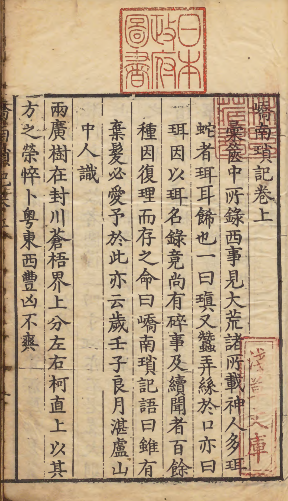 日本
政府
圖書
嶠南瑣記卷上
中所錄西事見大荒諸所載神人多珥
蛇者珥耳飾也一曰瑱又蠶弄絲於口亦曰
珥因以珥名錄竟尚有碎事及續聞者百餘
種因復理而存之命曰嶠南瑣記語曰雖有
棄髮必愛予於此亦云歲壬子良月湛盧山
中人識
兩廣樹在封川蒼梧界上分左右柯直上以其
方之榮悴卜粵東西豐凶不爽
淺草文庫